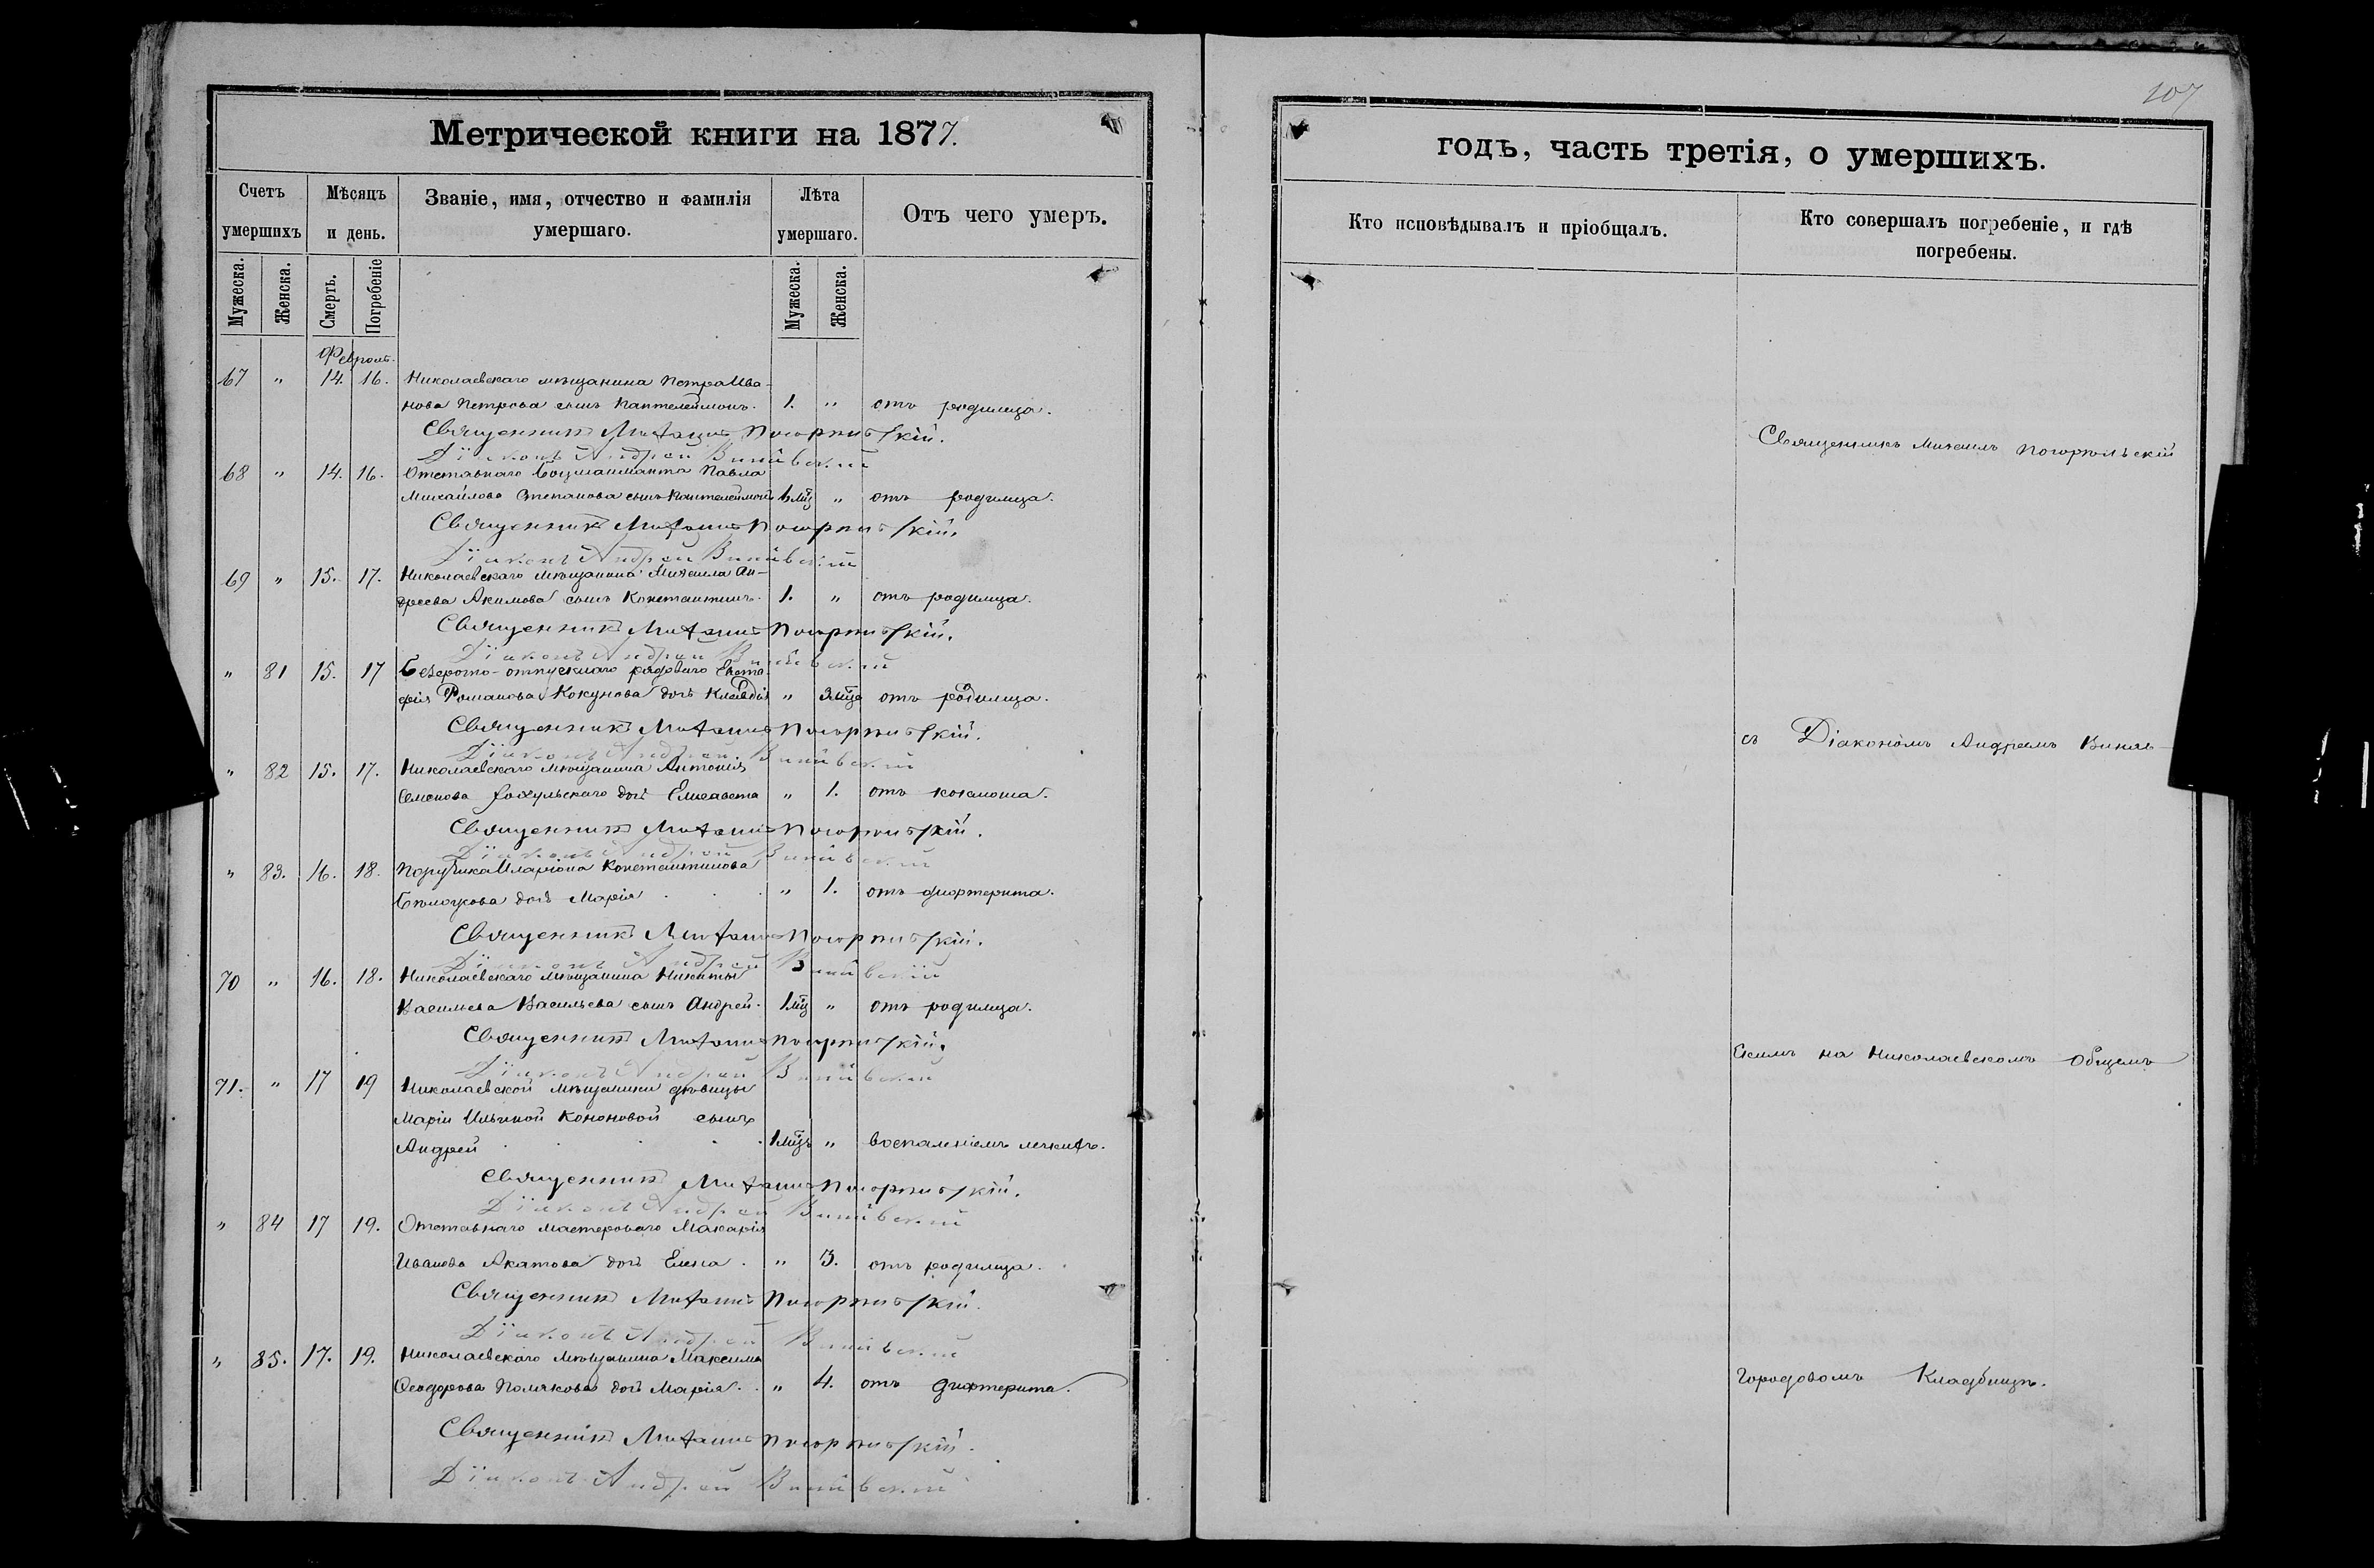 107
Метрической книги на 1877.
годъ, часть третія, о умершихъ.
Счетъ умершихъ
Мѣсяцъ и день.
Званіе, имя, отчество и фамилія умершаго.
Лѣта умершаго.
Отъ чего умеръ.
Кто исповѣдывалъ и пріобщалъ.
Кто совершалъ погребеніе, и гдѣ погребены.
Мужеска.
Женска.
Смерть.
Погребеніе
Мужеска.
Женска.
Февраль.
67 " 14. 16. Николаевскаго мѣщанина Петра Ива-
нова Петрова сынъ Пантелеймонъ. 1. " отъ родимца.
Священникъ Михаилъ Погорѣльскій.
Діаконъ Андрей
68 " 14. 16. Отставнаго Боцманманта Павла
Михайлова Степанова сынъ Пантелеймонъ 1 мц " отъ родимца.
Священникъ Михаилъ Погорѣльскій.
Діаконъ Андрей
69 " 15. 17. Николаевскаго мѣщанина Михаила Ан-
дреева Акимова сынъ Константинъ. 1. " отъ родимца.
Священникъ Михаилъ Погорѣльскій.
Діаконъ Андрей
" 81 15. 17 Безсрочно-отпускнаго рядоваго
Романова Кокунова дочь Клавдія " 3 мца отъ родимца.
Священникъ Михаилъ Погорѣльскій.
Діаконъ Андрей
" 82 15. 17. Николаевскаго мѣщанина Антонія
Семенова дочь Елисавета " 1. отъ коклюша.
Священникъ Михаилъ Погорѣльскій.
Діаконъ Андрей
" 83. 16. 18. Поручика Иларіона Константинова
дочь Марія " 1. отъ дифтерита.
Священникъ Михаилъ Погорѣльскій.
Діаконъ Андрей
70 " 16. 18. Николаевскаго мѣщанина Никиты
Васильева Васильева сынъ Андрей. 1 мц " отъ родимца.
Священникъ Михаилъ Погорѣльскій.
Діаконъ Андрей
71. " 17 19 Николаевской мѣщанки дѣвицы
Маріи Ильиной Кононовой сынъ
Андрей 1 мцъ " воспаленіемъ легкихъ.
Священникъ Михаилъ Погорѣльскій.
Діаконъ Андрей
" 84 17 19. Отставнаго мастероваго Макарія
Иванова Акатова дочь Елена. " 3. отъ родимца.
Священникъ Михаилъ Погорѣльскій.
Діаконъ Андрей
" 85. 17. 19. Николаевскаго мѣщанина Максима
Ѳеодорова Полякова дочь Марія. " 4. отъ дифтерита.
Священникъ Михаилъ Погорѣльскій.
Діаконъ Андрей
Священникъ Михаилъ Погорѣльскій
съ Діакономъ Андреемъ
скимъ на Николаевскомъ Общемъ
Городовомъ Кладбищѣ.